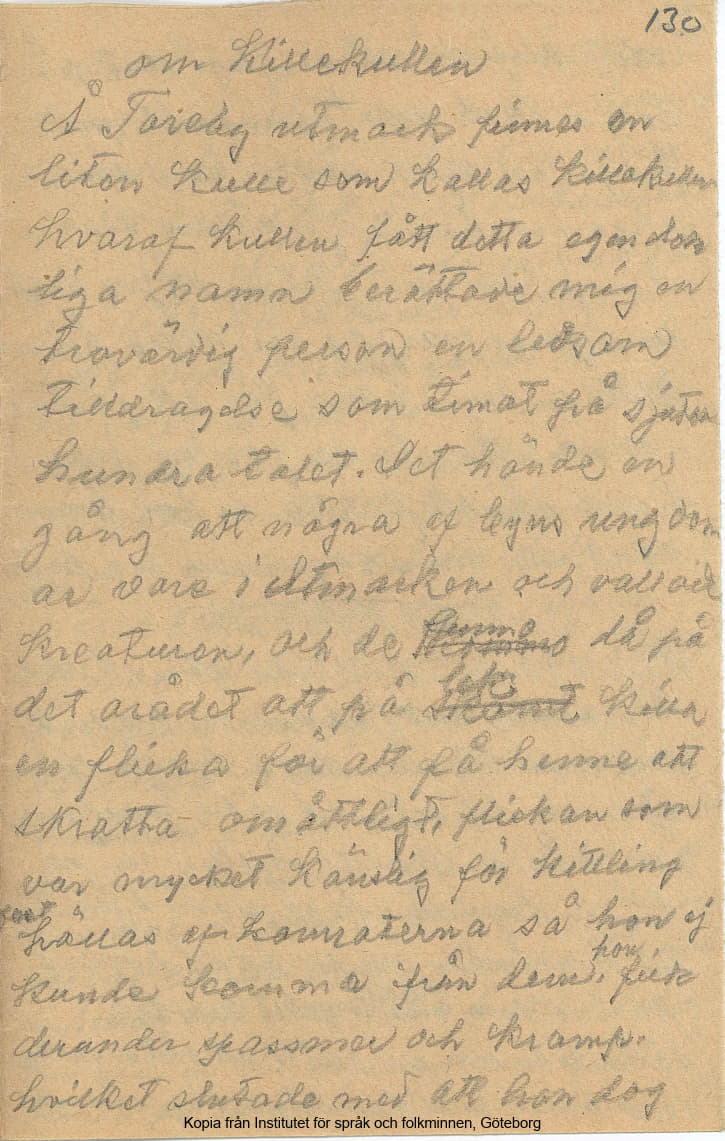 130
om Killekullen
Å Toreby utmark finnes en
liten kulle som kallas Killekullen
hvaraf kullen fått detta egendom
liga namn berättade mig en
trovärdig person en ledsam
tilldragelse som timat på sjutton
hundra talet. Det hände en
gång att några af byns ungdom
ar vore i Utmarken och vallade
kreaturen, och de funno då på
det orådet att på lek killa
en flicka för att få henne att
skratta omåttligt, flickan som
var mycket känslig för kittling
fast
hållas af kamraterna så hon ej
kunde komma ifrån dem, hon fick
derunder spassmer och kramp.
hvilket slutade med att hon dog
Kopia från Institutet för språk och folkminnen, Göteborg